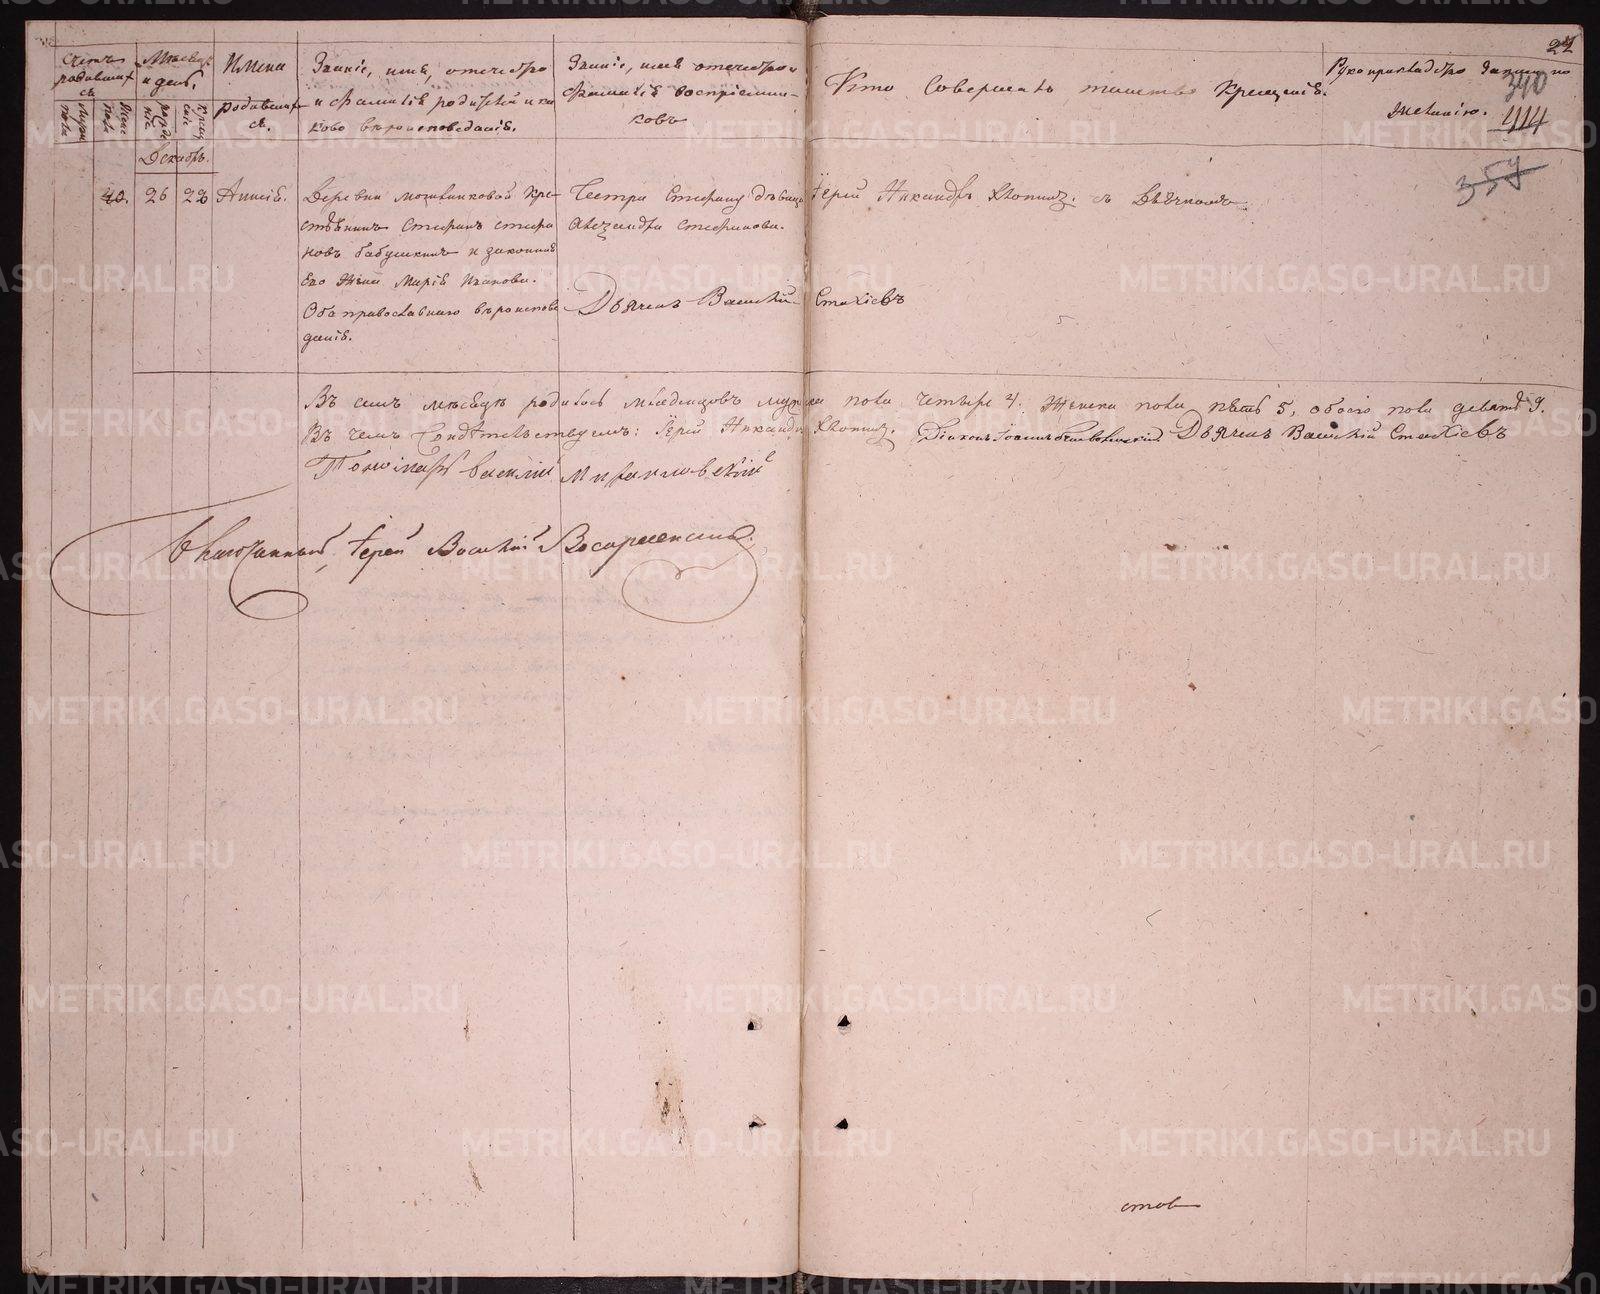 24
340
414
357
Счетъ родившихся
Мѣсяцъ и день.
Имена родившихся.
Званіе, имя, отечество и фамилія родителей и какого вѣроисповеданія.
Званіе, имя отечество и фамилія воспріемниковъ
Кто Совершалъ таинство Крещенія.
Рукоприкладство записи по желанію.
Мужеска пола
Женска пола
Рожденіе
Крещеніе
Декабрь.
40. 26 28 Анисія.
Деревни крестьянинъ Стефанъ Стефановъ Бабушкинъ и законная
его жена Марія Иванова.
Оба православнаго вѣроисповеданія.
Сестра Стефану дѣвица
Александра Стефанова.
Іерей Никандръ с Дьячкомъ
Дьячекъ Василій Стахіевъ
Въ семъ мѣсяцѣ родилось младенцовъ мужска пола четыре 4. Женска пола пять 5, обоего пола девять 9.
Въ чемъ Свидѣтельствуемъ: Іерей Никандръ Діаконъ Іоаннъ Дьячекъ Василій Стахіевъ
Пономарь Василій
Благочинный, Іерей Василій Воскресенскій.
METRIKI.GASO-URAL.RU